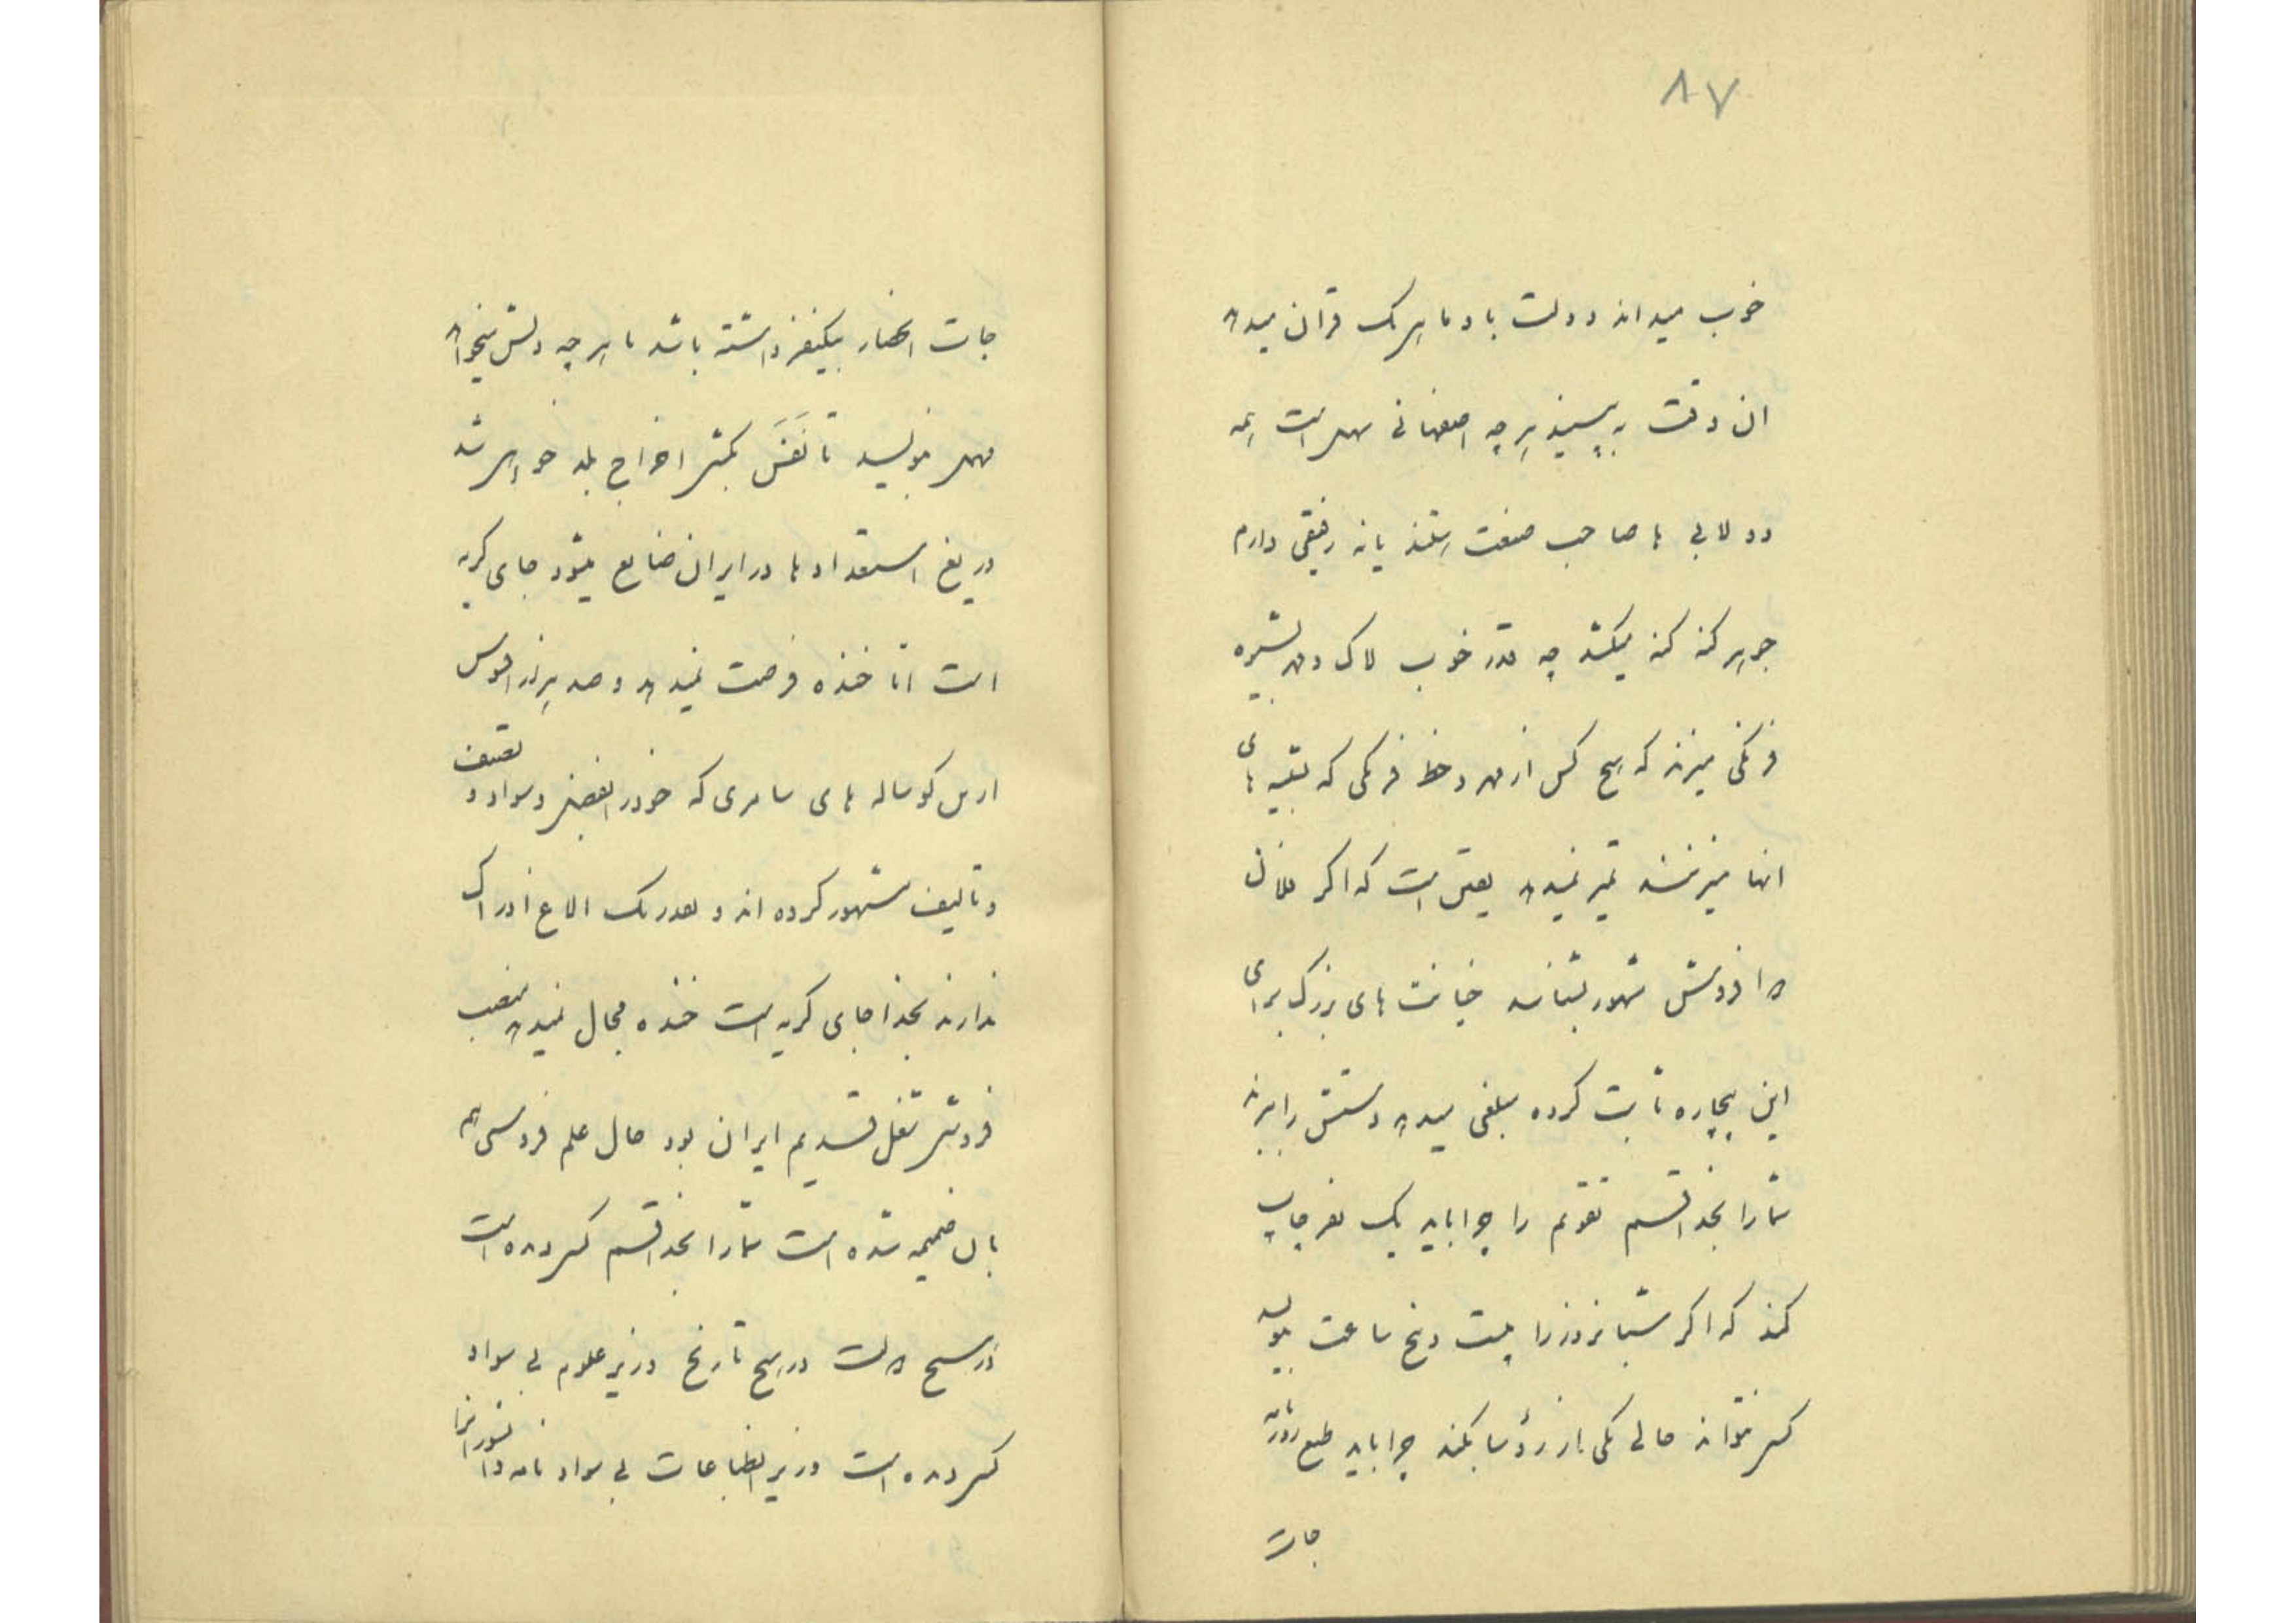 ۸۷
خوب میداند دولت باد ما هر یک قران میدهد
ان وقت به بینید هر چه اصفهانی مهر است همه
دولابی ها صاحب صنعت هستند یا نه رفیقی دارم
جوهر کنه کنه میکشد چه قدر خوب لاک و مهر بشیره
فرنگی میزند که هیچ کس از مهر و خط فرنگی که بقیه های
انها میزنند تمیز نمیدهد یقین است که اگر فلان
دوا فروش مشهور بشناسد خیانت های بزرگ برای
این بیچاره ثابت کرده مبلغی میدهد دستش را ببرند
شما را بخدا قسم تقویم را چرا باید یک نفر چاپ
کند که اگر شبانروز را بیست و پنج ساعت بنویسد
کسی نتواند حالی یکی از رؤسا بکند چرا باید طبع روزنامه
جات
جات انحصار بیکنفر داشته باشد تا هر چه دلش میخواهد
مهر بنویسد تا نَفَسَ بکشی اخراج بلد خواهی شد
دریغ استعداد ها در ایران ضایع میشود جای گریه
است امّا خنده فرصت نمیدهد و صد هزار افسوس
ازین گوساله های سامری که خود را بفضل و سواد و تصنیف
و تالیف مشهور کرده اند و بقدر یک الاغ ادراک
ندارند بخدا جای گریه است خنده مجال نمیدهد منصب
فروشی شغل قدیم ایران بود حال علم فروشی هم
بان ضمیمه شده است شما را بخدا قسم کسی دیده است
در هیچ دولت در هیچ تاریخ وزیر علوم بی سواد
کسی دیده است وزیر انطباعات بی سواد نامه دانشوران را